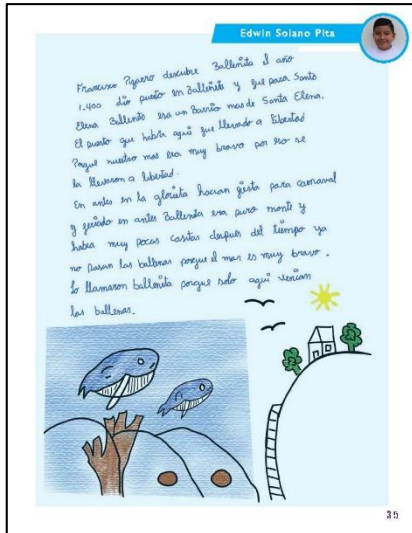 Edwin Solano Pita
Francisco Pizarro descubre Ballenita el año
1.400 dio puerto en Ballenita y fue para Santa
Elena Ballenita era un Barrio mas de Santa Elena.
El puerto que habia aqui fue llevado a libertad
Porque nuestro mar era muy bravo por eso se
la llevaron a libertad.
En antes en la glorieta hacian fiesta para carnaval
y feriado en antes Ballenita era puro monte y
habia muy pocas casitas después del tiempo ya
no pasan las ballenas porque el mar es muy bravo.
Lo llamaron ballenita porque solo aqui venian
las ballenas.
35